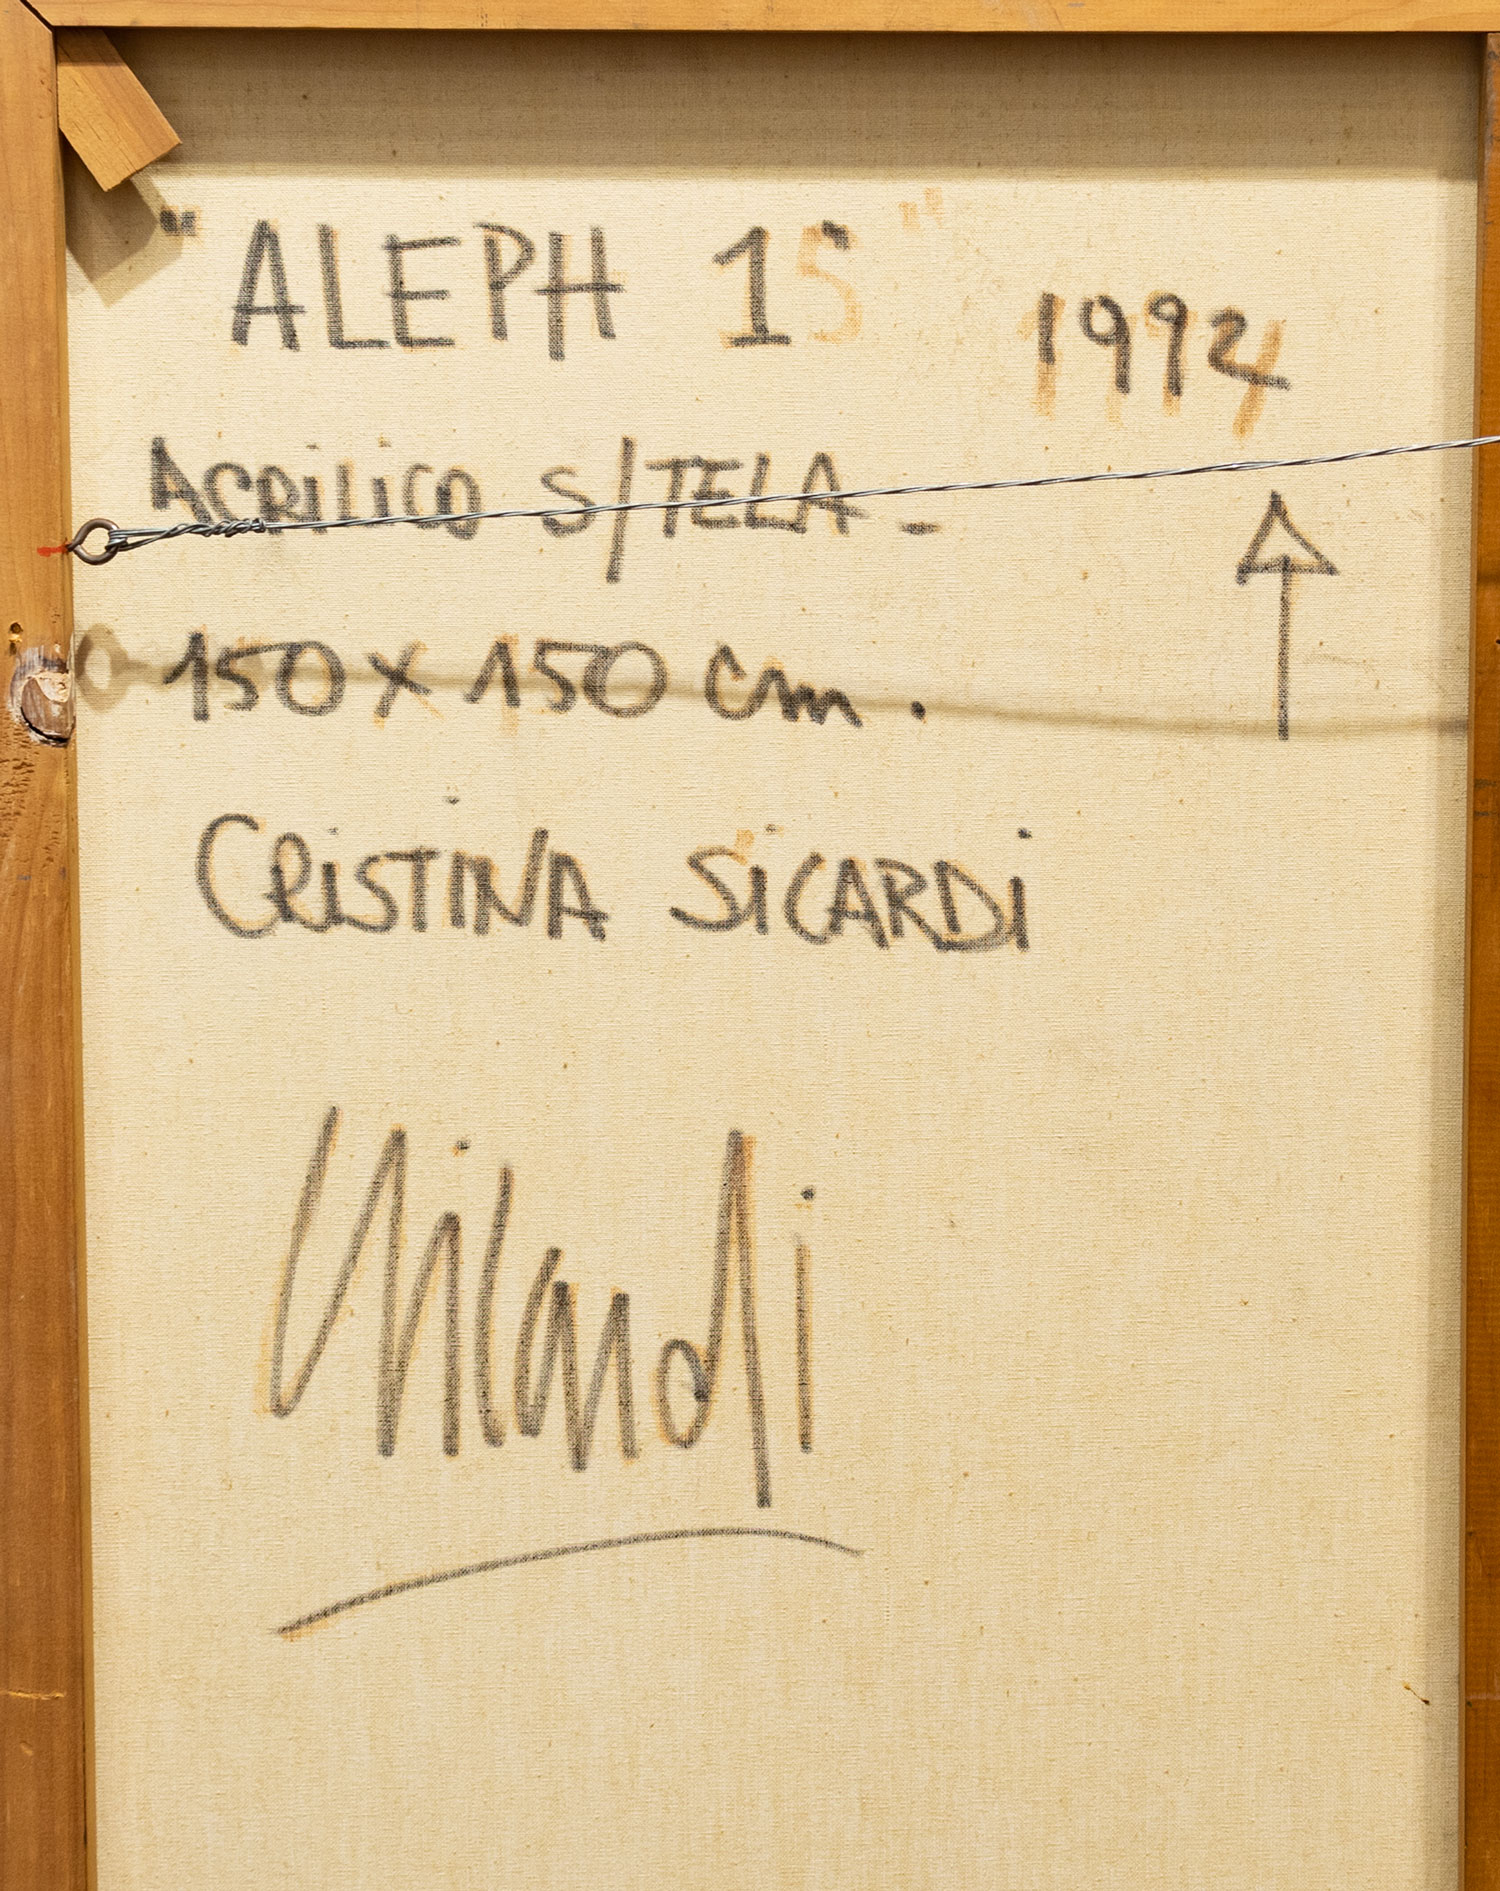 "ALEPH 1" 1992
ACRILICO S/TELA -
150 x 150 cm.
CRISTINA SICARDI
Sicardi